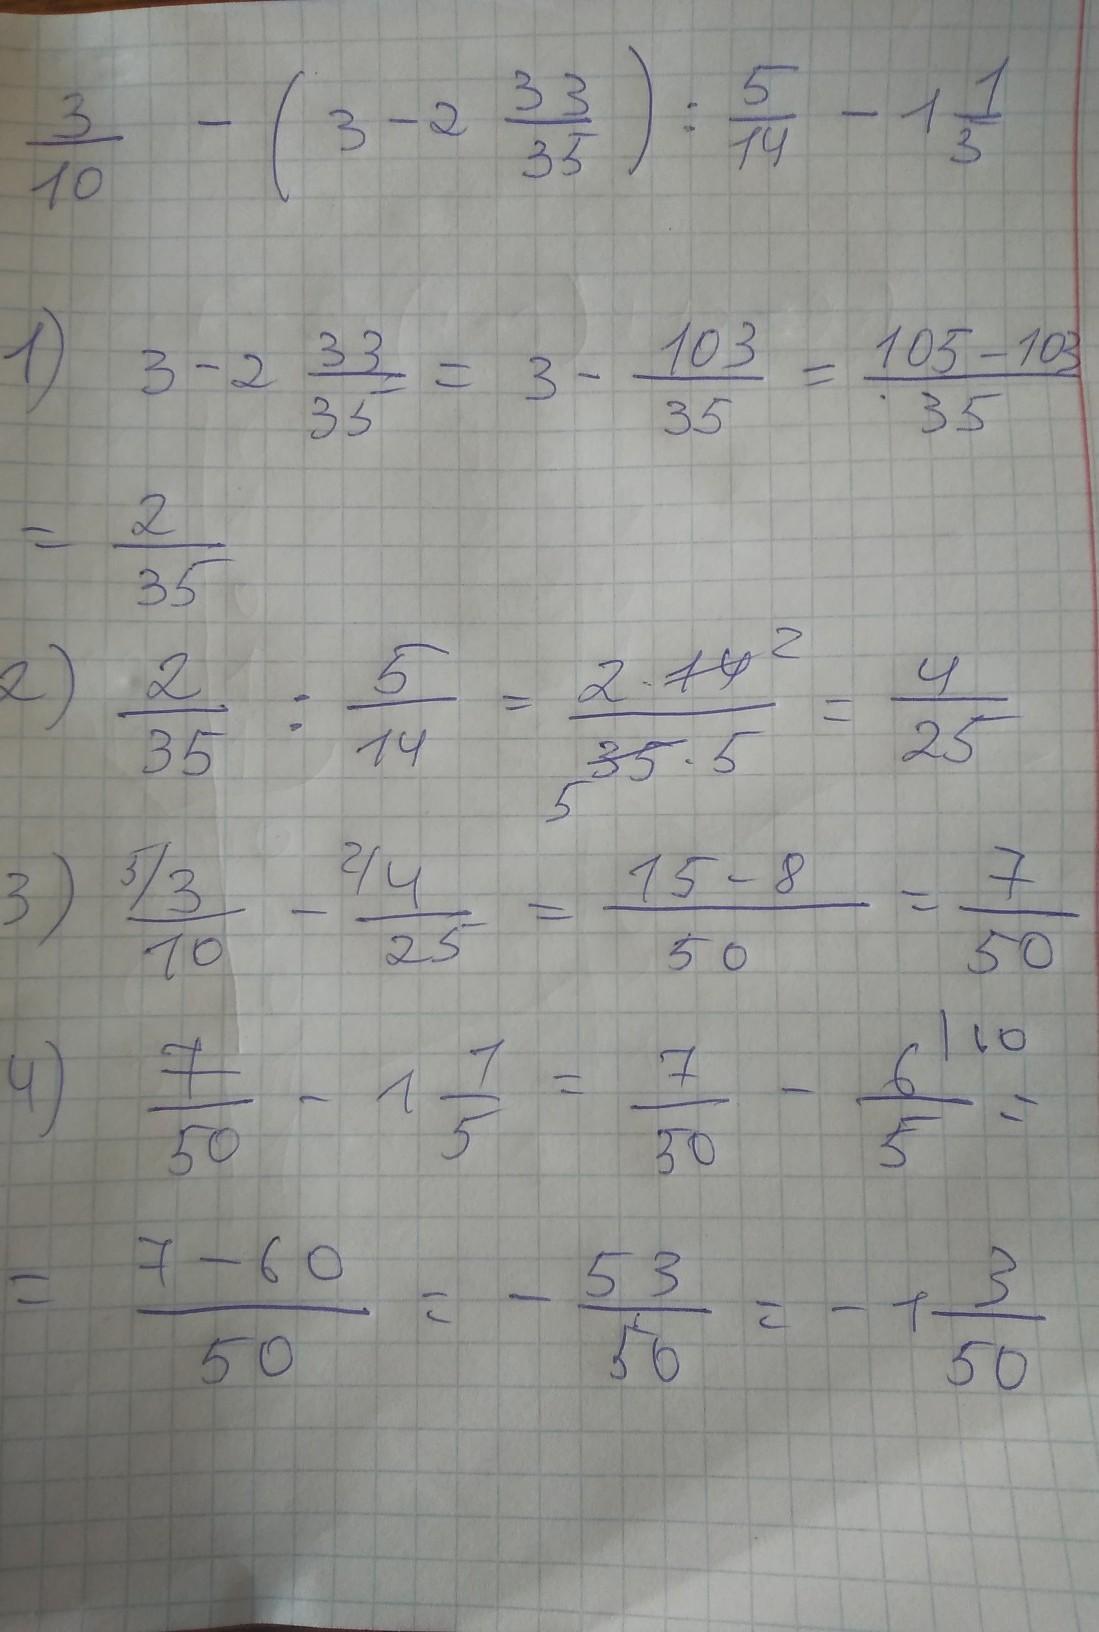 3/10 - (3 - 2 33/35) : 5/14 - 1 1/3
1) 3 - 2 33/35 = 3 - 103/35 = 105 - 103/35
= 2/35
2) 2/35 : 5/14 = 2 · 14 2/35 · 5 5 = 4/25
3) 5/ 3/10 - 2/ 4/25 = 15 - 8/50 = 7/50
4) 7/50 - 1 1/5 = 7/50 - 6/5 |10 =
= 7 - 60/50 = - 53/50 = - 1 3/50